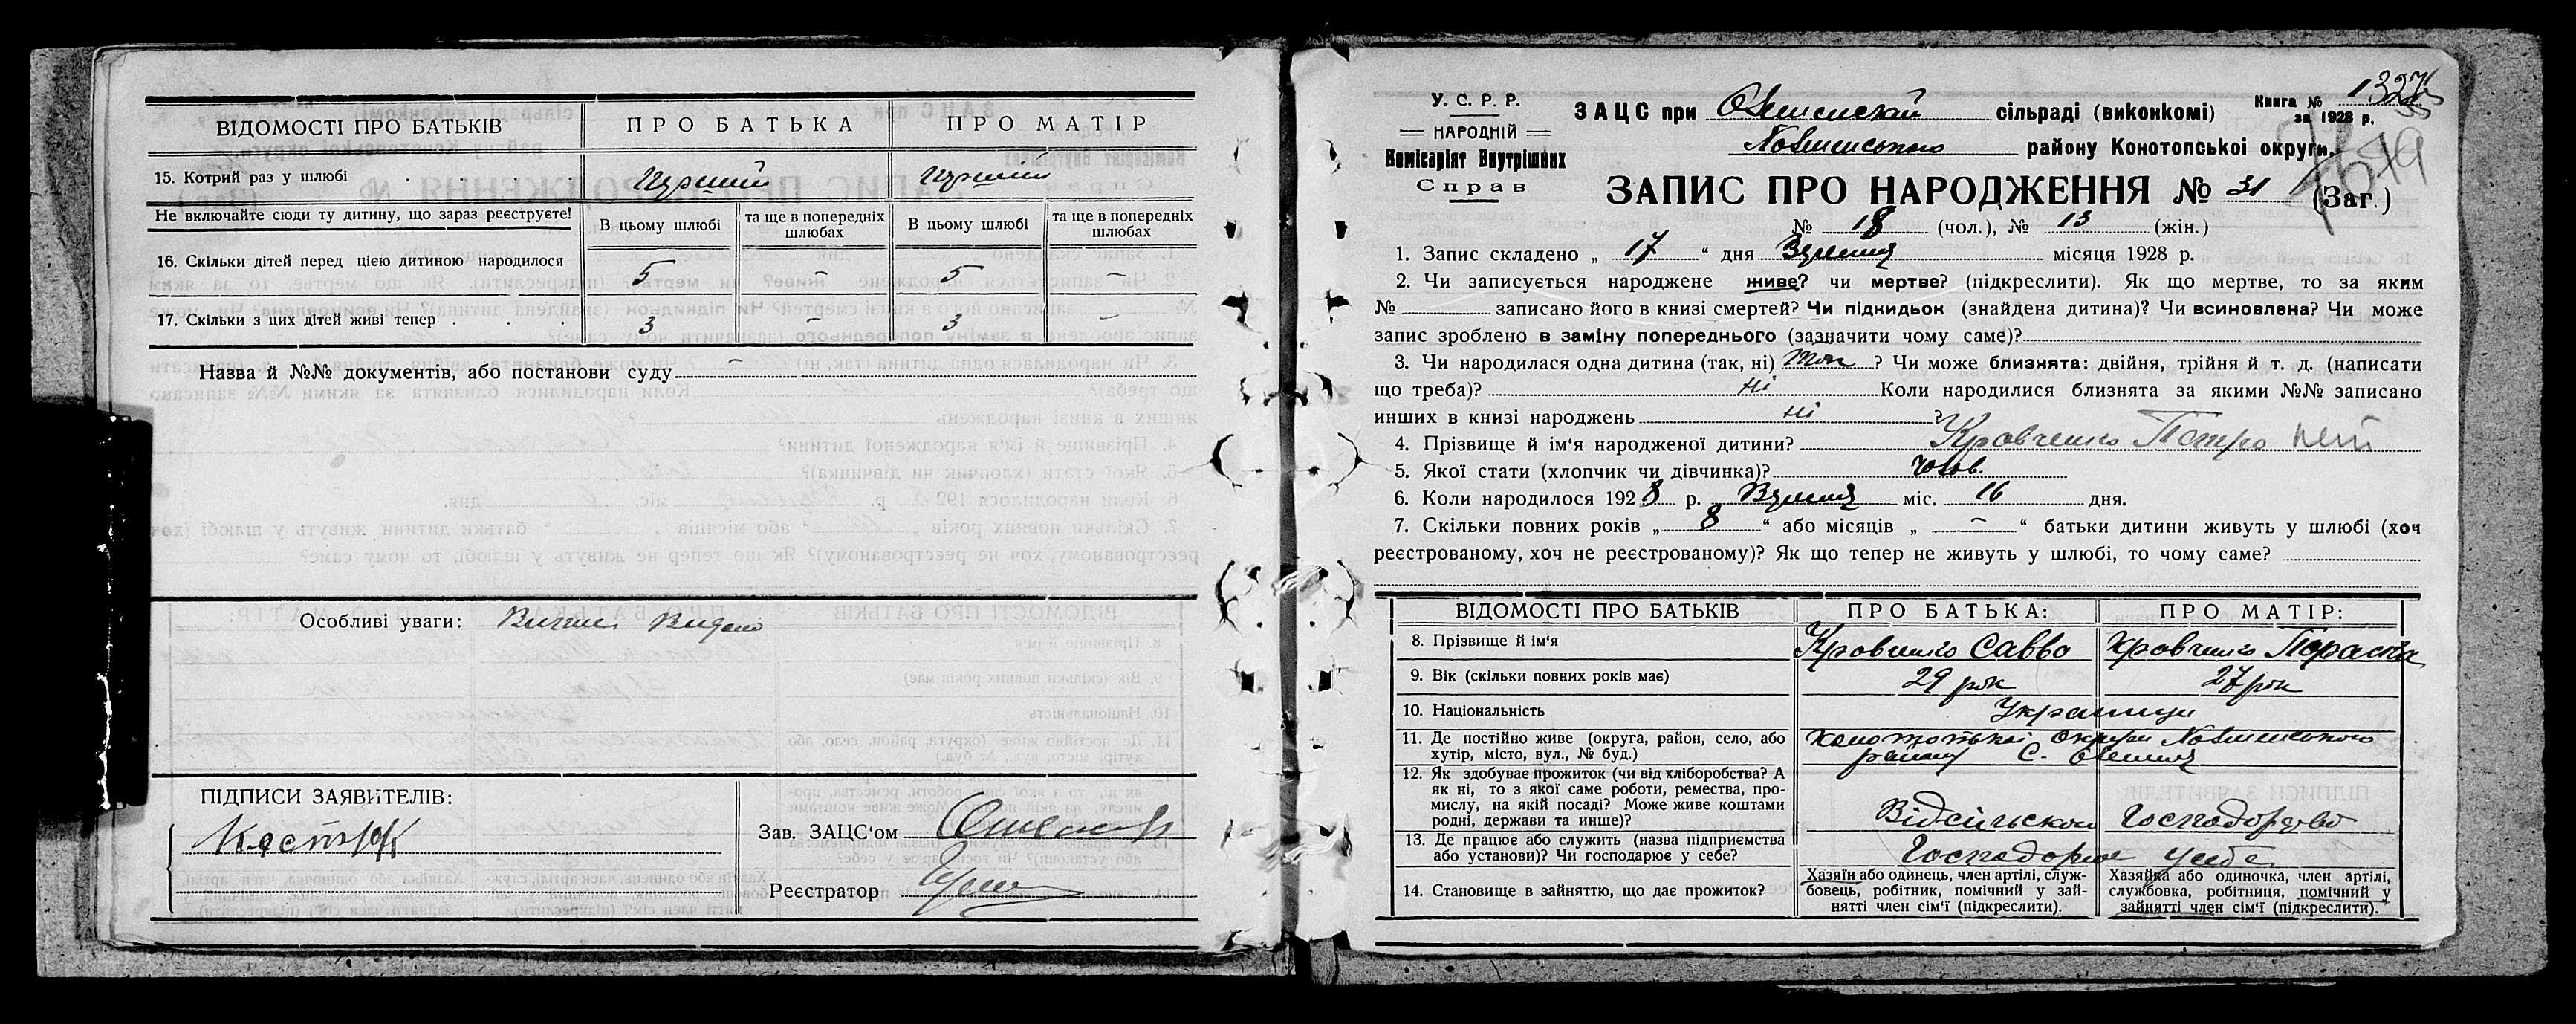 ВІДОМОСТІ ПРО БАТЬКІВ
ПРО БАТЬКА
ПРО МАТІР
15. Котрий раз у шлюбі
перший
перший
Не включайте сюди ту дитину, що зараз реєструєте!
В цьому шлюбі
та ще в попередніх шлюбах
В цьому шлюбі
та ще в попередніх шлюбах
16. Скільки дітей перед цією дитиною народилося
5 – 5 –
17. Скільки з цих дітей живі тепер . . .
3 – 3 –
Назва й №№ документів, або постанови суду –
Особливі уваги:
ПІДПИСИ ЗАЯВИТЕЛІВ:
Зав. ЗАЦС‘ом
Реєстратор
У. С. Р. Р.
НАРОДНІЙ
Комісаріят Внутрішніх
Справ
Книга №
за 1928 р.
ЗАЦС при сільраді (виконкомі)
району Конотопської округи.
ЗАПИС ПРО НАРОДЖЕННЯ № 31 (Заг.)
№ 18 (чол.), № 13 (жін.)
1. Запис складено „ 17 “ дня місяця 1928 р.
2. Чи записується народжене живе? чи мертве? (підкреслити). Як що мертве, то за яким
№ записано його в книзі смертей? Чи підкидьок (знайдена дитина)? Чи всиновлена? Чи може
запис зроблено в заміну попереднього (зазначити чому саме)?
3. Чи народилася одна дитина (так, ні) так ? Чи може близнята: двійня, трійня й т. д. (написати
що треба)? Ні Коли народилися близнята за якими №№ записано
инших в книзі народжень Ні ?
4. Прізвище й ім‘я народженої дитини? Кровченко Петро
5. Якої стати (хлопчик чи дівчинка)? Чолов.
6. Коли народилося 1928 р. міс. 16 дня.
7. Скільки повних років „ 8 “ або місяців „ – “ батьки дитини живуть у шлюбі (хоч
реєстрованому, хоч не реєстрованому)? Як що тепер не живуть у шлюбі, то чому саме?
ВІДОМОСТІ ПРО БАТЬКІВ
ПРО БАТЬКА:
ПРО МАТІР:
8. Прізвище й ім‘я
Кровченко Савво
Кровченко Параска
9. Вік (скільки повних років має)
29 рок
27 рок
10. Національність
Українци
11. Де постійно живе (округа, район, село, або
хутір, місто, вул., № буд.)
12. Як здобуває прожиток (чи від хліборобства? А
як ні, то з якої саме роботи, ремества, про-
мислу, на якій посаді? Може живе коштами
родні, держави та инше)?
Відсільского Господарства
13. Де працює або служить (назва підприємства
або установи)? Чи господарює у себе?
Господорює у себе
14. Становище в зайняттю, що дає прожиток?
Хазяїн або одинець, член артілі, служ-
бовець, робітник, помічний у зай-
нятті член сім‘ї (підкреслити).
Хазяйка або одиночка, член артілі,
службовка, робітниця, помічний у
зайнятті член сім‘ї (підкреслити).